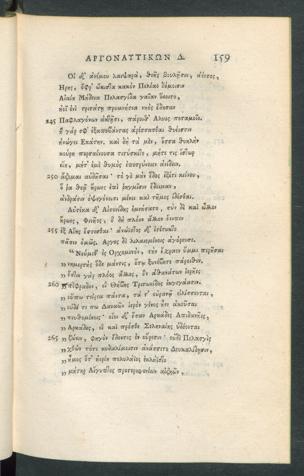 ΑΡΓΟΝΑΥΤΙΚΩΝ Δ. 159
Οἱ δ' ἀνέμου λαιψηρὰ, θεῆς βουλῇσιν, ἀέντος,
Ἥρης, ὄφρ' ὤκιστα κακὸν Πελίαο δόμοισιν
Αἰαίη Μήδεια Πελασγίδα γαῖαν ἵκοιτο,
ἠοῖ ἐνὶ τριτάτῃ πρυμνήσια νηὸς ἔδησαν
245 Παφλαγόνων ἀκτῇσι, πάροιθ' Ἅλυος ποταμοῖο.
ἡ γάρ σφ' ἐξαποβάντας ἀρέσσασθαι θυέεσσιν
ἠνώγει Ἑκάτην. καὶ δὴ τὰ μὲν, ὅσσα θυηλὴν
κούρη πορσανέουσα τιτύσκετο, μήτε τις ἴστωρ
εἴη, μήτ' ἐμὲ θυμὸς ἐποτρύνειεν ἀείδειν.
250 ἅζομαι αὐδῆσαι· τό γε μὴν ἕδος ἐξέτι κείνου,
ὅ ῥα θεᾷ ἥρωες ἐπὶ ῥηγμῖσιν ἔδειμαν,
ἀνδράσιν ὀψιγόνοισι μένει καὶ τῆμος ἰδέσθαι.
Αὐτίκα δ' Αἰσονίδης ἐμνήσατο, σὺν δὲ καὶ ὧλλοι
ἥρωες, Φινῆος, ὃ δὴ πλόον ἄλλον ἔειπεν
255 ἐξ Αἴης ἔσσεσθαι· ἀνώϊστος δ' ἐτέτυκτο
πᾶσιν ὁμῶς. Ἄργος δὲ λιλαιομένοις ἀγόρευσε.
"Νεύμεθ' ἐς Ὀρχομενὸν, τὴν ἔχραεν ὔμμι περῆσαι
" νημερτὴς ὅδε μάντις, ὅτῳ ξυνέβητε πάροιθεν.
" ἔστιν γὰρ πλόος ἄλλος, ὃν ἀθανάτων ἱερῆες
260 " πέφραδον, οἳ Θήβης Τριτωνίδος ἐκγεγάασιν.
" οὔπω τείρεα πάντα, τά τ' οὐρανῷ εἱλίσσονται,
" οὐδέ τί πω Δαναῶν ἱερὸν γένος ἦεν ἀκοῦσαι
" πευθομένοις· οἶοι δ' ἔσαν Ἀρκάδες Ἀπιδανῆες,
" Ἀρκάδες, οἳ καὶ πρόσθε Σεληναίης ὑδέονται
265 " ζώειν, φηγὸν ἔδοντες ἐν οὔρεσιν· οὐδὲ Πελασγὶς
" χθὼν τότε κυδαλίμοισιν ἀνάσσετο Δευκαλίδησιν,
" ἦμος ὅτ' ἠερίη πολυλήϊος ἐκλήϊστο
" μήτηρ Αἴγυπτος προτερηγενέων αἰζηῶν,